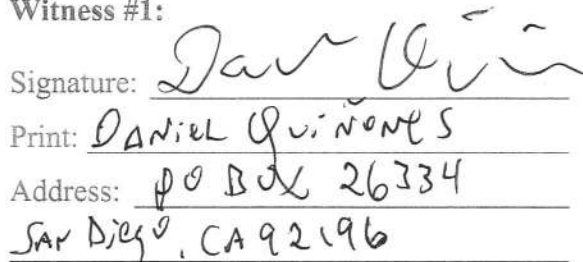 Witness #1:
Signature:
Print: DANiEL QUiÑONES
Address: PO BOX 26334
SAN DiEgO, CA 92196